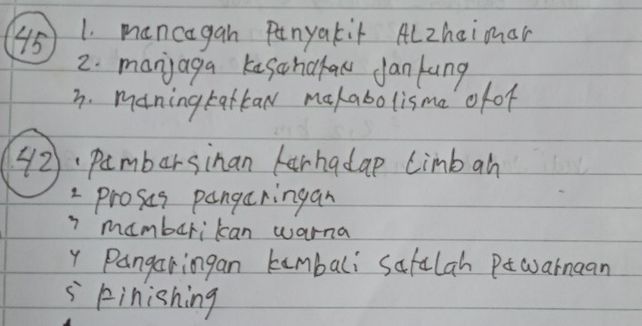 45 1. mencegah Penyakit ALzheimer
2. menjaga kesehatan Jantung
3. meningkatkan metabolisme otot
42 1. Pembersihan terhadap Limbah
2 proses pengeringan
3 memberikan warna
4 Pengeringan kembali setelah pewarnaan
5 Finishing